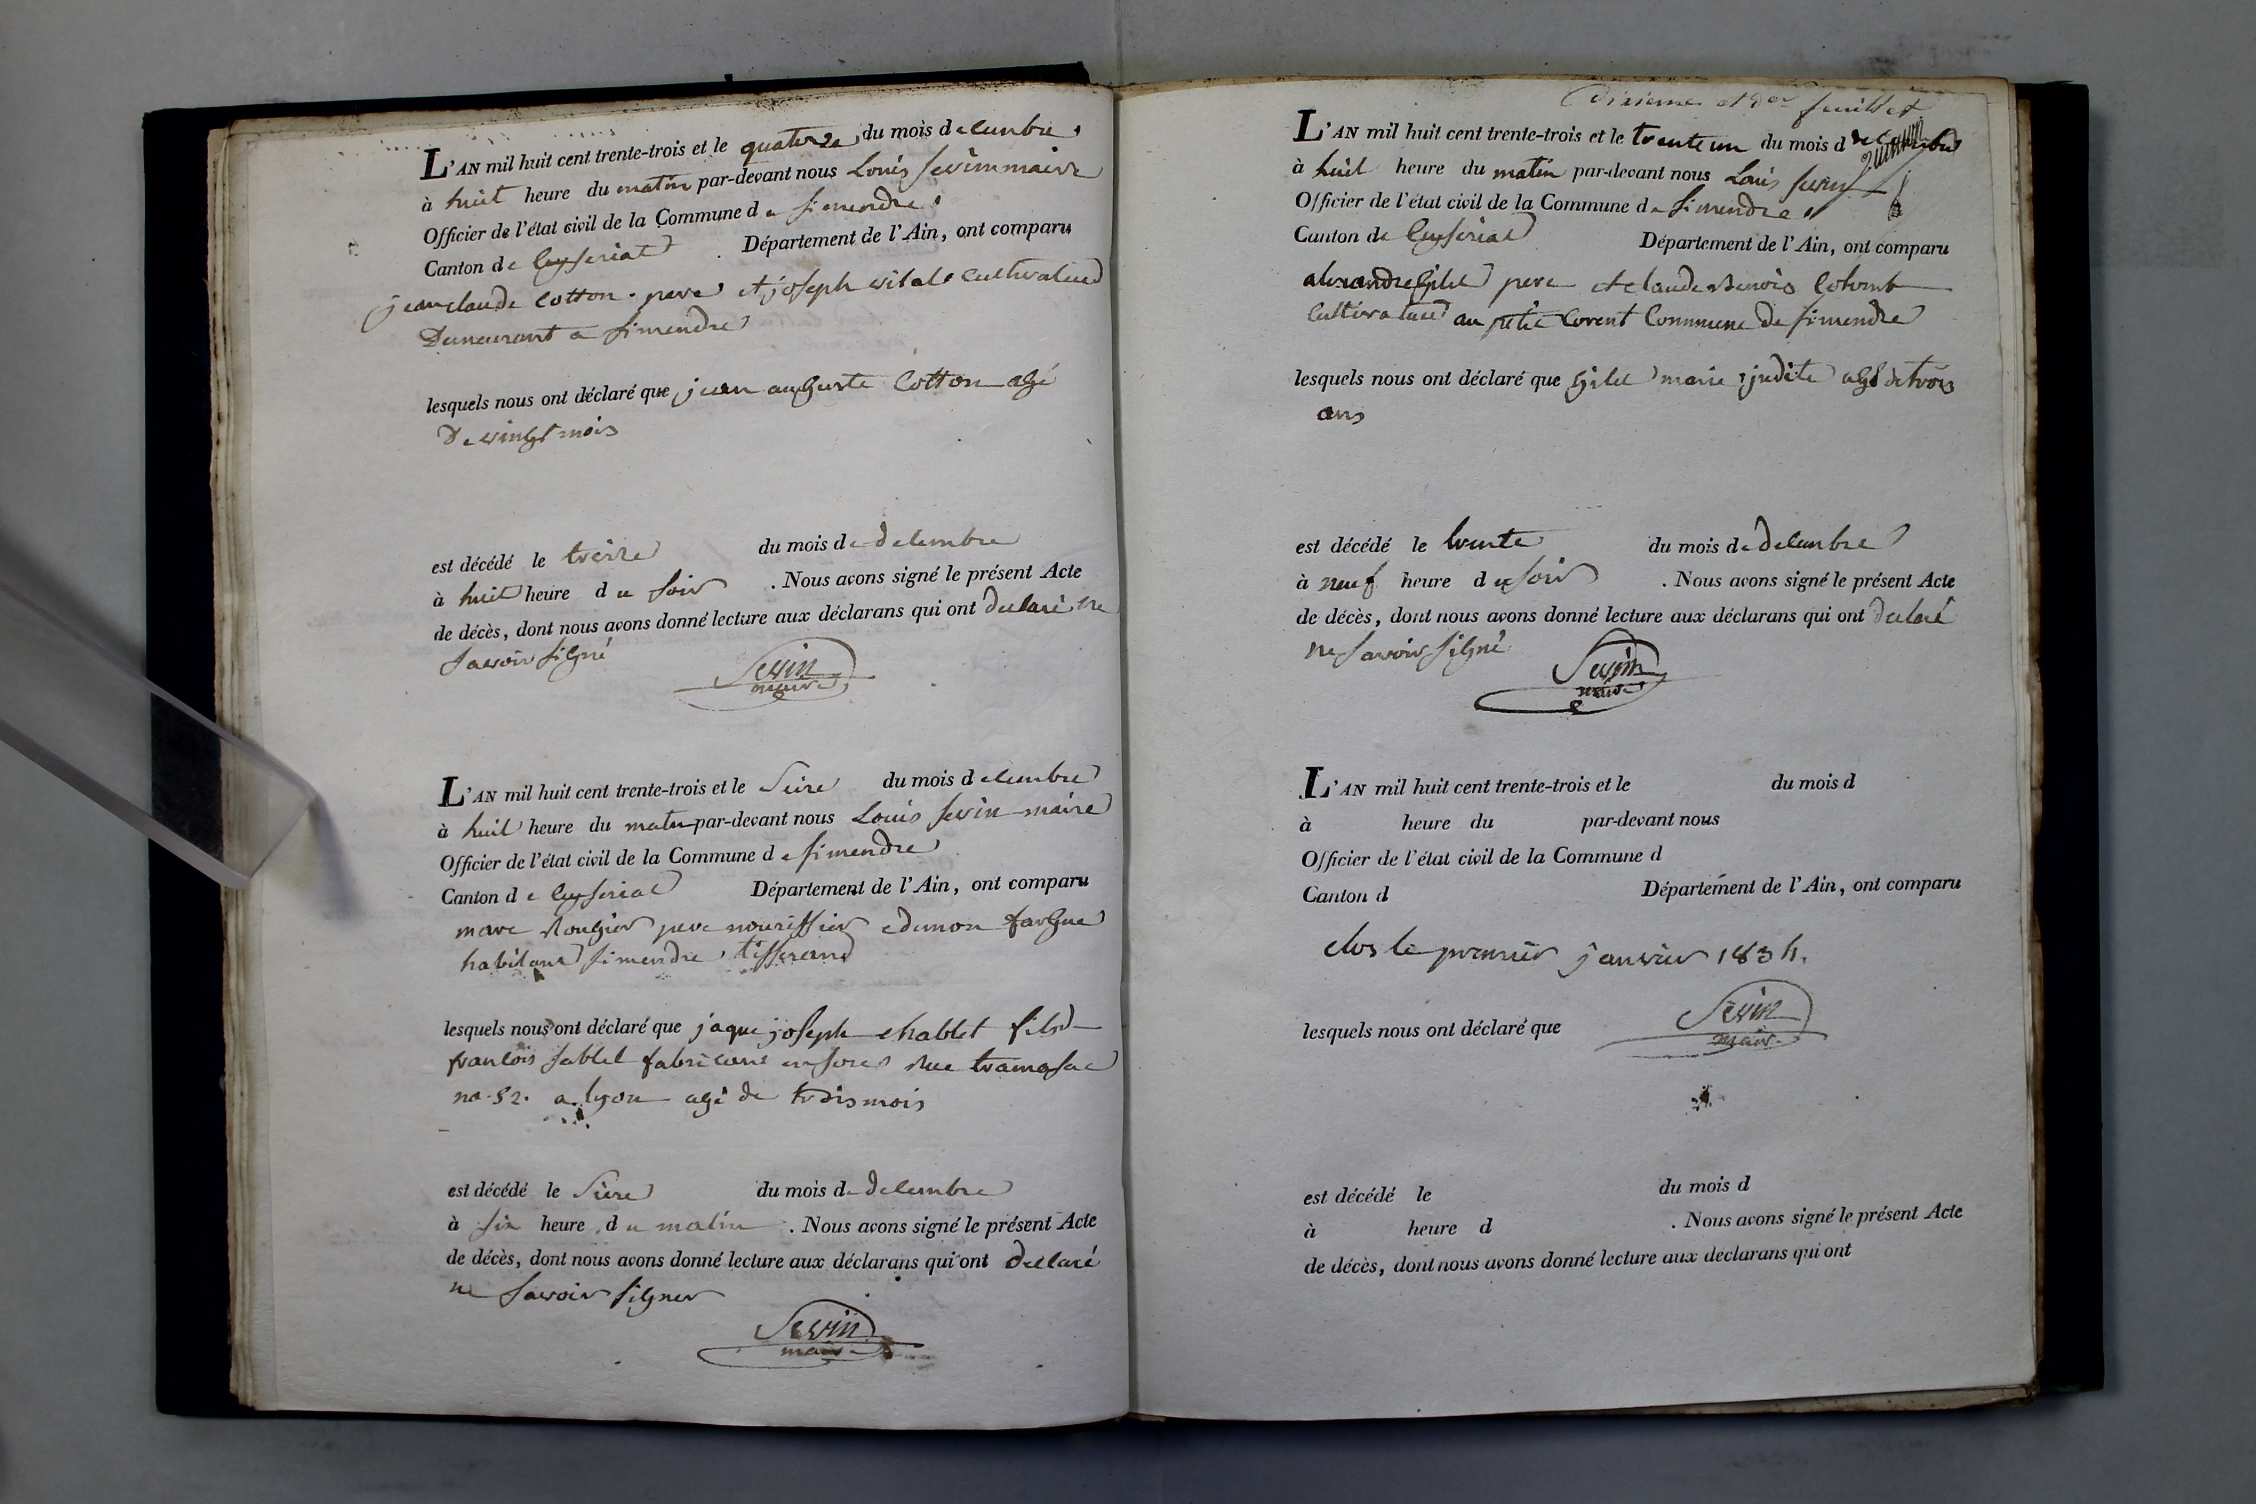 L'AN mil huit cent trente-trois et le quatorze du mois decembre
à huit heure du matin par-devant nous Louis sevin maire
Officier de l'état civil de la Commune de simendre
Canton de Ceyseriat Département de l'Ain, ont comparu
jean claude Cotton pere et joseph vital Cultivateur
Demeurant a simendre
lesquels nous ont déclaré que jean auguste Cotton agé
De vingt mois
est décédé le treize du mois de decembre
à huit heure du soir . Nous avons signé le présent Acte
de décès, dont nous avons donné lecture aux déclarans qui ont declaré ne
savoir signé
Sevin
maire
L'AN mil huit cent trente-trois et le seize du mois decembre
à huit heure du matin par-devant nous Louis sevin maire
Officier de l'état civil de la Commune de simendre
Canton de Ceyseriat Département de l'Ain, ont comparu
marc Rougier pere nourissier edmon fargue
habitant simendre tisserand
lesquels nous ont déclaré que jaque joseph chablet fils d
francois sablet fabricant en soies Rue tramasac
no. 52. a lyon agé de trois mois
est décédé le seize du mois de decembre
à six heure du matin . Nous avons signé le présent Acte
de décès, dont nous avons donné lecture aux déclarans qui ont declaré
ne savoir signer
Sevin
maire
Dixieme et Der feuillet
L'AN mil huit cent trente-trois et le trente un du mois d decembre
à huit heure du matin par-devant nous Louis sevin
Officier de l'état civil de la Commune de simendre
Canton de Ceyseriat Département de l'Ain, ont comparu
alexandre gilet pere et claude Benois Colomb
Cultivateur au petit Corent Commune de simendre
lesquels nous ont déclaré que gilet marie judite agé de trois
ans
est décédé le trente du mois de decembre
à neuf heure du soir . Nous avons signé le présent Acte
de décès, dont nous avons donné lecture aux déclarans qui ont declaré
ne savoir signé
Sevin
maire
L'AN mil huit cent trente-trois et le du mois d
à heure du par-devant nous
Officier de l'état civil de la Commune d
Canton d Département de l'Ain, ont comparu
clos le premier janvier 1834.
Sevin
maire
lesquels nous ont déclaré que
est décédé le du mois d
à heure d . Nous avons signé le présent Acte
de décès, dont nous avons donné lecture aux déclarans qui ont